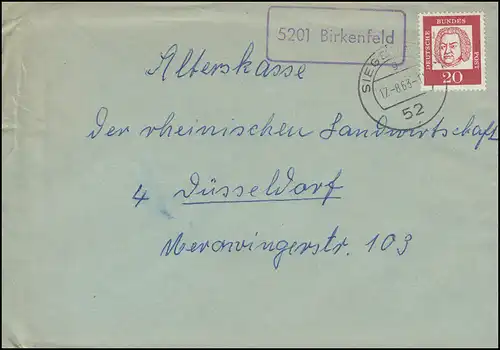 5201 Birkenfeld
DEUTSCHE BUNDES POST
20
17.-8.63-1
52
Alterskasse
der rheinischen Landwirtschaft
4 Düsseldorf
Merowingerstr. 103